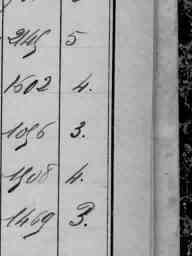 2145 5
1602 4.
1056 3.
1508 4.
1469 3.